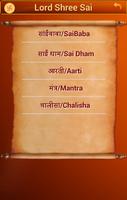 Lord Shree Sai
सांईबाबा/SaiBaba
साई धाम/Sai Dham
आरती/Aarti
मंत्र/Mantra
चालीसा/Chalisha